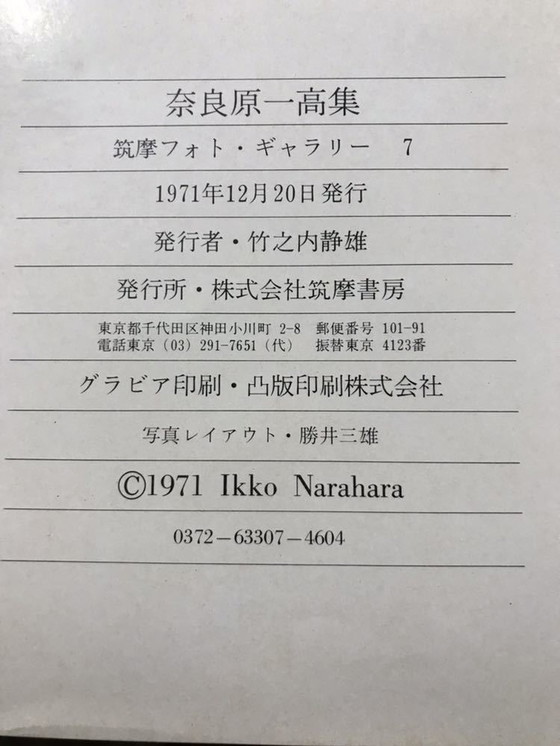 奈良原一高集
筑摩フォト・ギャラリー　7
1971年12月20日発行
発行者・竹之内静雄
発行所・株式会社筑摩書房
東京都千代田区神田小川町 2-8　郵便番号 101-91
電話東京 (03) 291-7651 (代)　振替東京 4123番
グラビア印刷・凸版印刷株式会社
写真レイアウト・勝井三雄
©1971 Ikko Narahara
0372-63307-4604